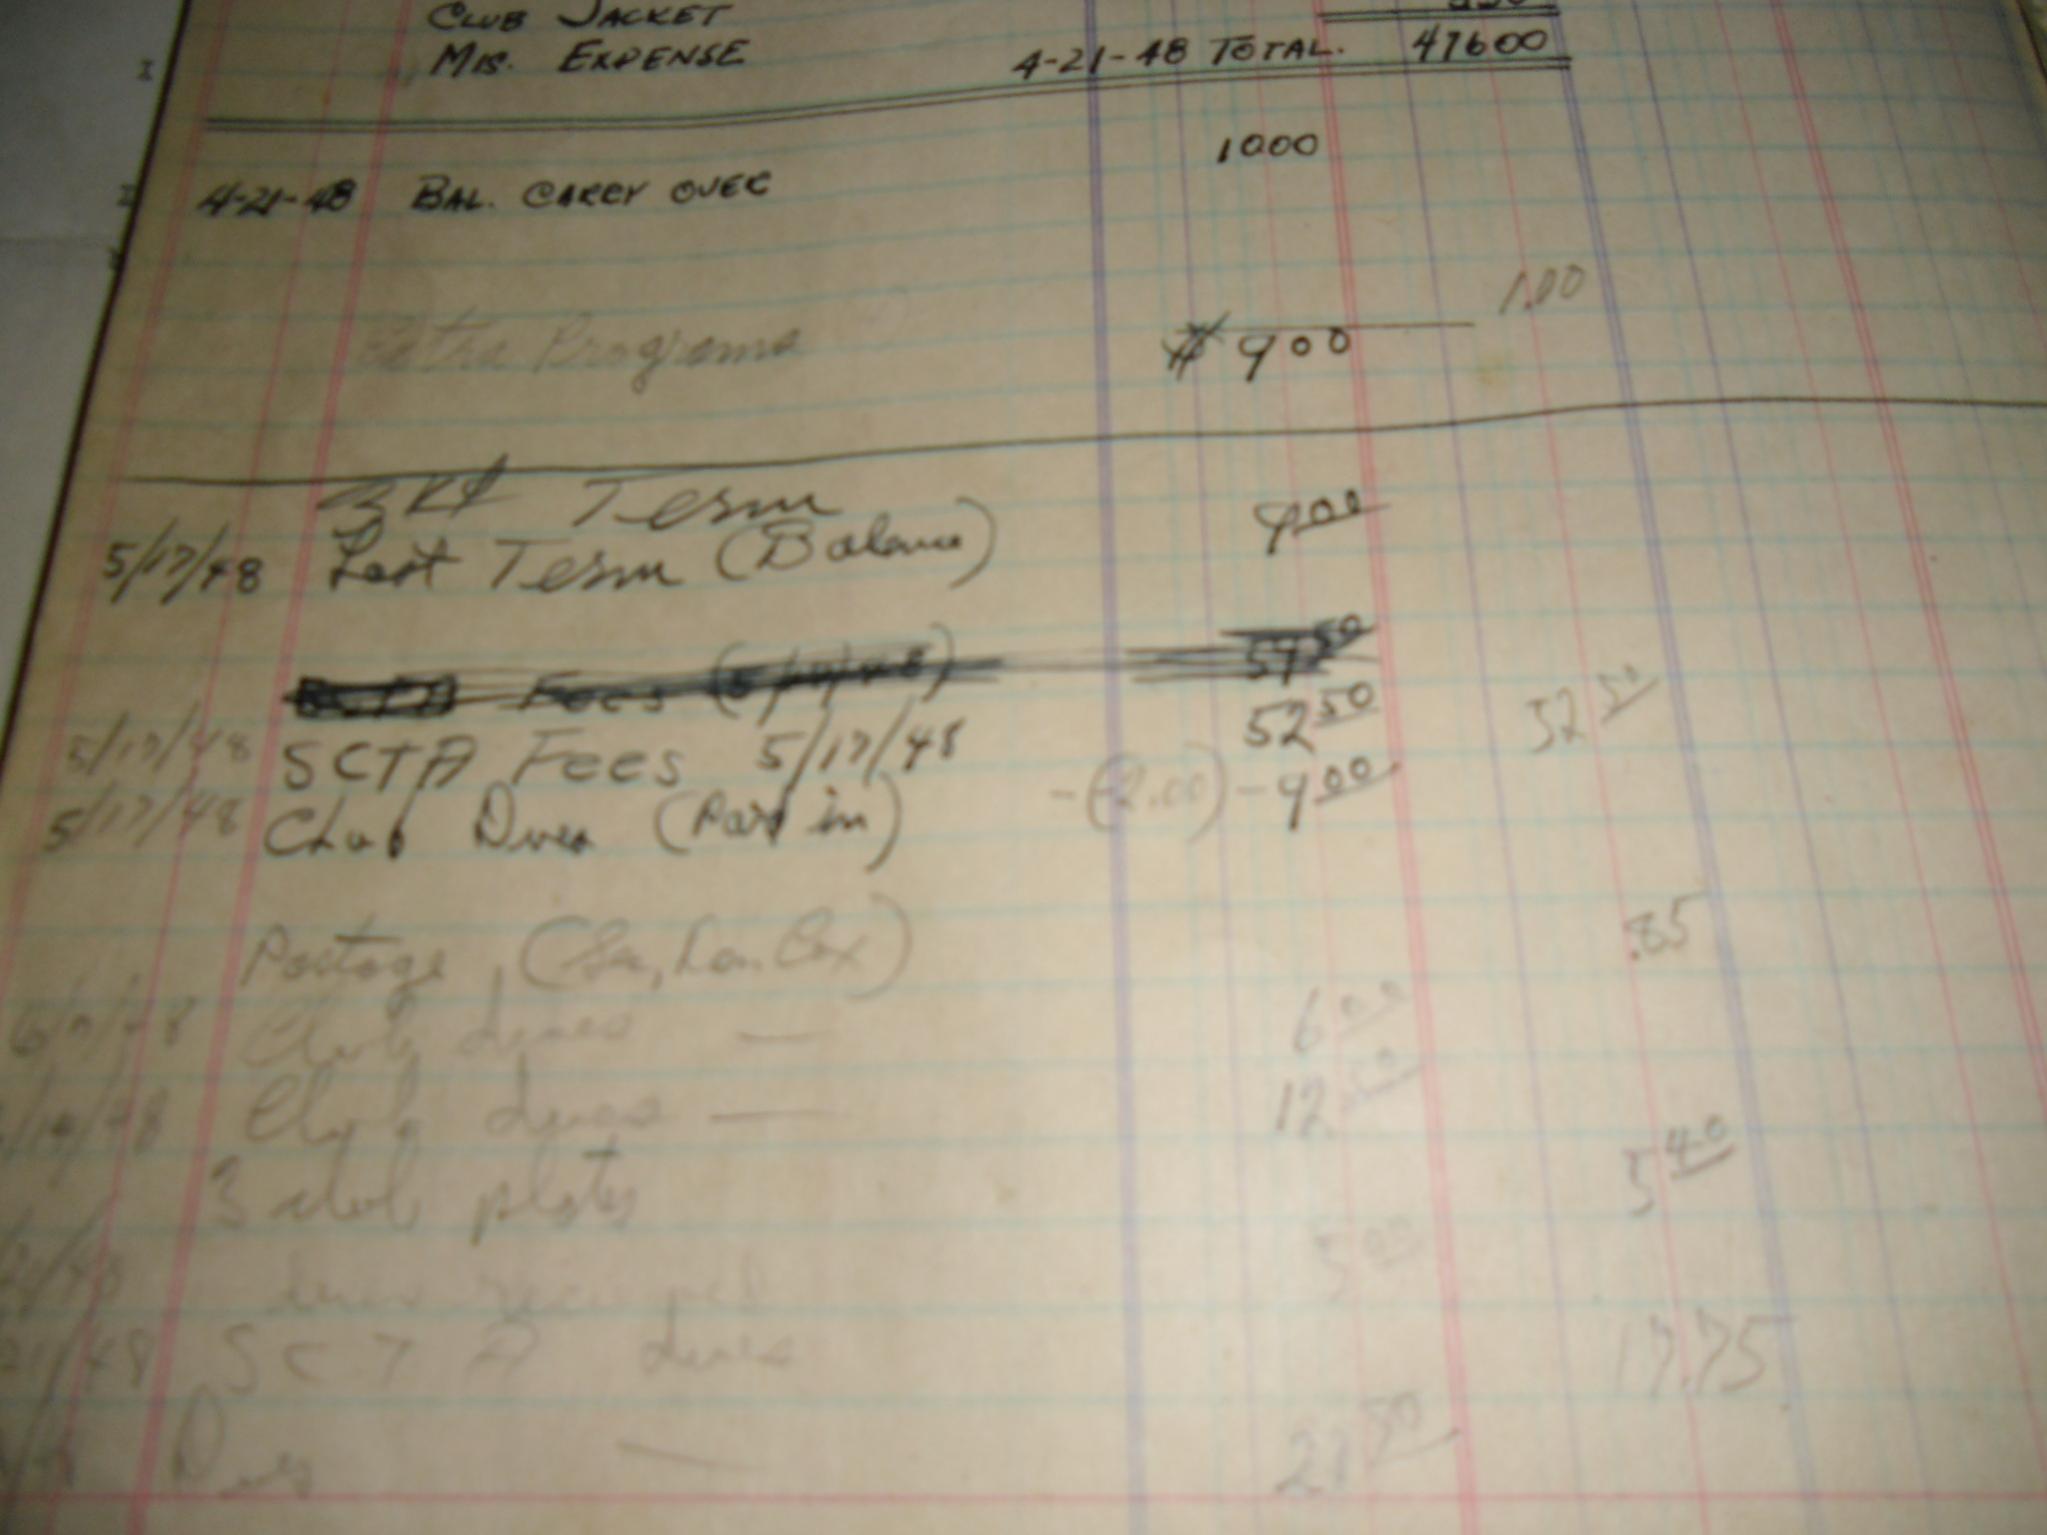 CLUB JACKET
MIS. EXPENSE 4-21-48 TOTAL. 47600
1000
4-21-48 BAL. CARRY OVER
1.00
Extra Programs $ 900
3rd Term
5/17/48 Last Term (Balance) 9 00
Fees 50
5/17/48 SCTA Fees 5/17/48 52 50 52 50
5/17/48 Club Dues (Paid in) -(2.00) - 9 00
Postage .85
Club dues — 6 00
Club dues — 12 00
3 club plates 5 40
dues received 5 00
SCTA dues 17.75
Dues — 50